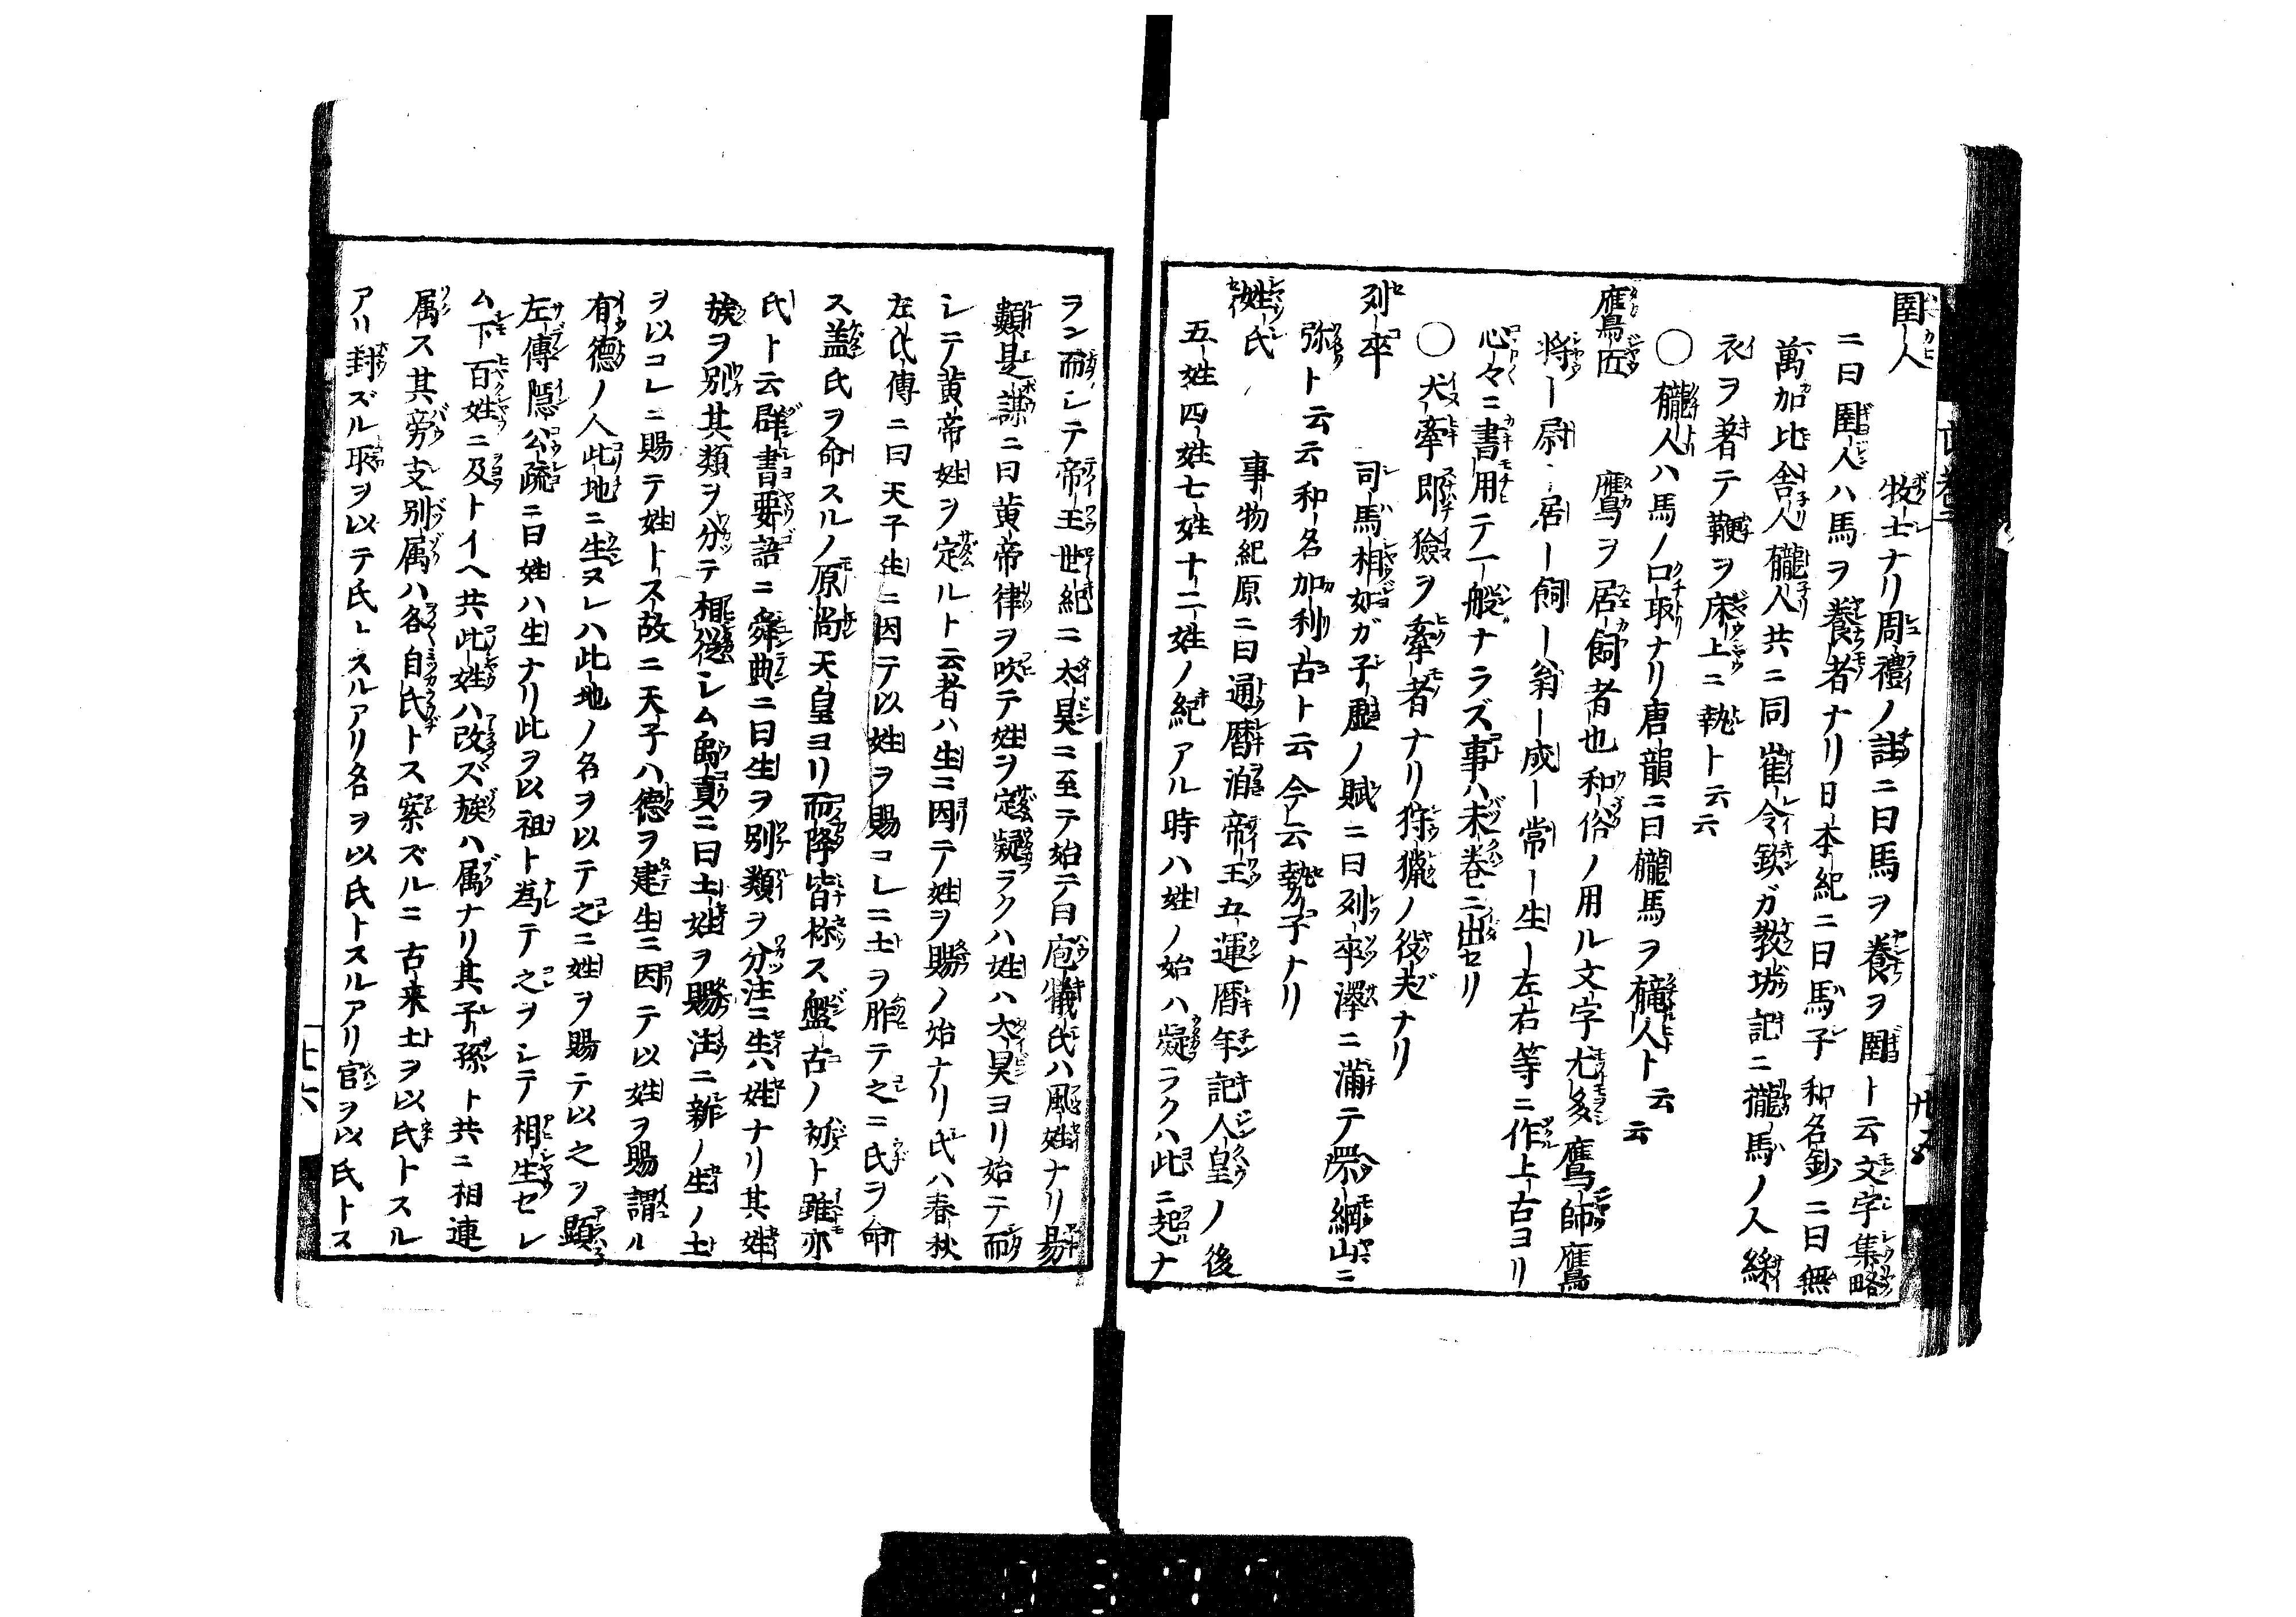 圉人　牧士ナリ周禮ノ註ニ曰馬ヲ養ヲ圉ト云文字集略
ニ曰圉人ハ馬ヲ養者ナリ日本紀ニ曰馬子和名鈔ニ曰無
萬加比舎人龓人共ニ同崔令欽ガ教坊記ニ攏馬ノ人綵
衣ヲ著テ鞭ヲ床上ニ執ト云云
〇龓人ハ馬ノ口取ナリ唐韻ニ曰龓馬ヲ龓人ト云云
鷹匠　鷹ヲ居飼者也和俗ノ用ル文字尤多鷹師鷹
将ー尉ー居ー飼ー翁ー成ー常ー生ー左右等ニ作上古ヨリ
心々ニ書用テ一般ナラズ事ハ末巻ニ出セリ
〇犬牽即獫ヲ牽者ナリ狩猟ノ役夫ナリ
列卒　司馬相如ガ子虚ノ賦ニ曰列卒澤ニ滿テ罘網山ニ
弥ト云云和名加利古ト云今云勢子ナリ
姓氏　事物紀原ニ曰通暦洎帝王五運暦年記人皇ノ後
五姓四姓七姓十二姓ノ紀アル時ハ姓ノ始ハ疑ラクハ此ニ起ナ
ラン而シテ帝王世紀ニ太昊ニ至テ始テ曰庖犧氏ハ風姓ナリ易
類是謀ニ曰黄帝律ヲ吹テ姓ヲ定疑ラクハ姓ハ太昊ヨリ始テ而
シテ黄帝姓ヲ定ルト云者ハ生ニ因テ姓ヲ賜ノ始ナリ氏ハ春秋
左氏傳ニ曰天子生ニ因テ以姓ヲ賜コレニ土ヲ胙テ之ニ氏ヲ命
ス蓋氏ヲ命スルノ原尚天皇ヨリ而降皆祢ス盤古ノ初ト雖亦
氏ト云群書要語ニ舜典ニ曰生ヲ別類ヲ分注ニ生ハ姓ナリ其姓
族ヲ別其類ヲ分テ相從シム禹貢ニ曰土姓ヲ賜注ニ新ノ生ノ土
ヲ以コレニ賜テ姓トス故ニ天子ハ德ヲ建生ニ因テ以姓ヲ賜謂ル
有德ノ人此地ニ生ヌレハ此地ノ名ヲ以テ之ニ姓ヲ賜テ以之ヲ顕
左傳隠公疏ニ曰姓ハ生ナリ此ヲ以祖ト為テ之ヲシテ相生セシ
ム下百姓ニ及トイヘ共此姓ハ改ズ族ハ属ナリ其子孫ト共ニ相連
属ス其旁支別属ハ各自氏トス案ズルニ古来土ヲ以氏トスル
アリ封ズル取ヲ以テ氏トスルアリ名ヲ以氏トスルアリ官ヲ以氏トス